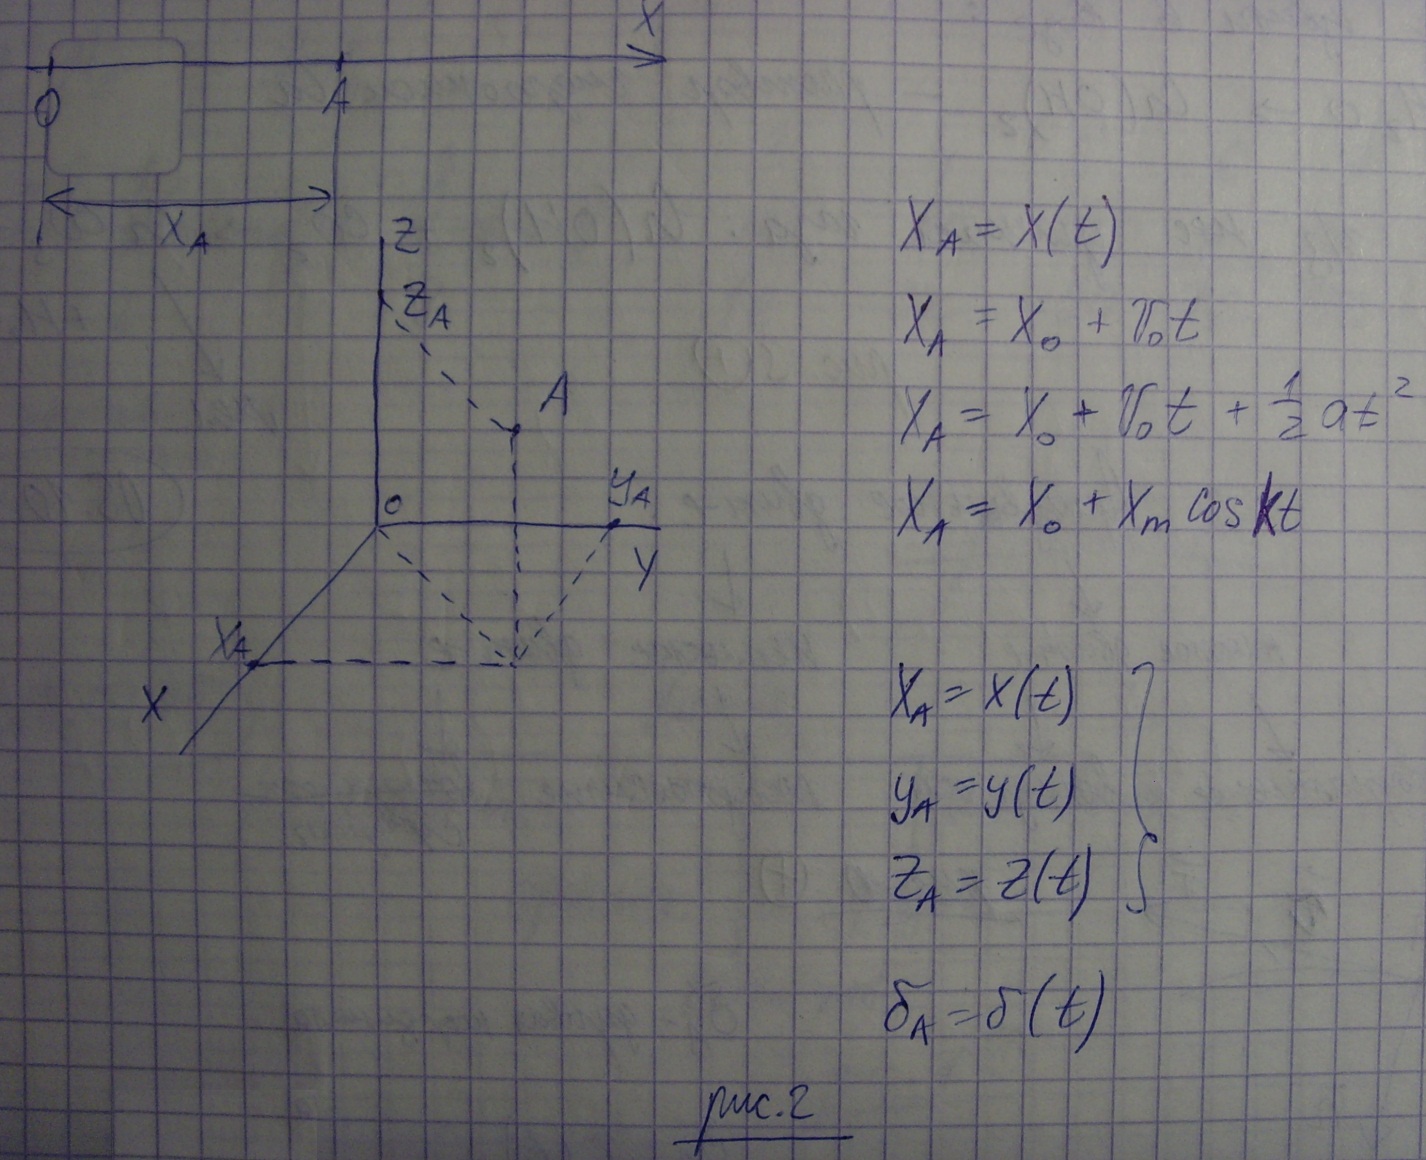 X
O A
X_A
Z
Z_A
A
O
y_A
y
X_A
X
X_A = X(t)
X_A = X_0 + V_0 t
X_A = X_0 + V_0 t + 1/2 at²
X_A = X_0 + X_m cos kt
X_A = x(t)
y_A = y(t)
Z_A = Z(t)
б_A = б(t)
рис. 2